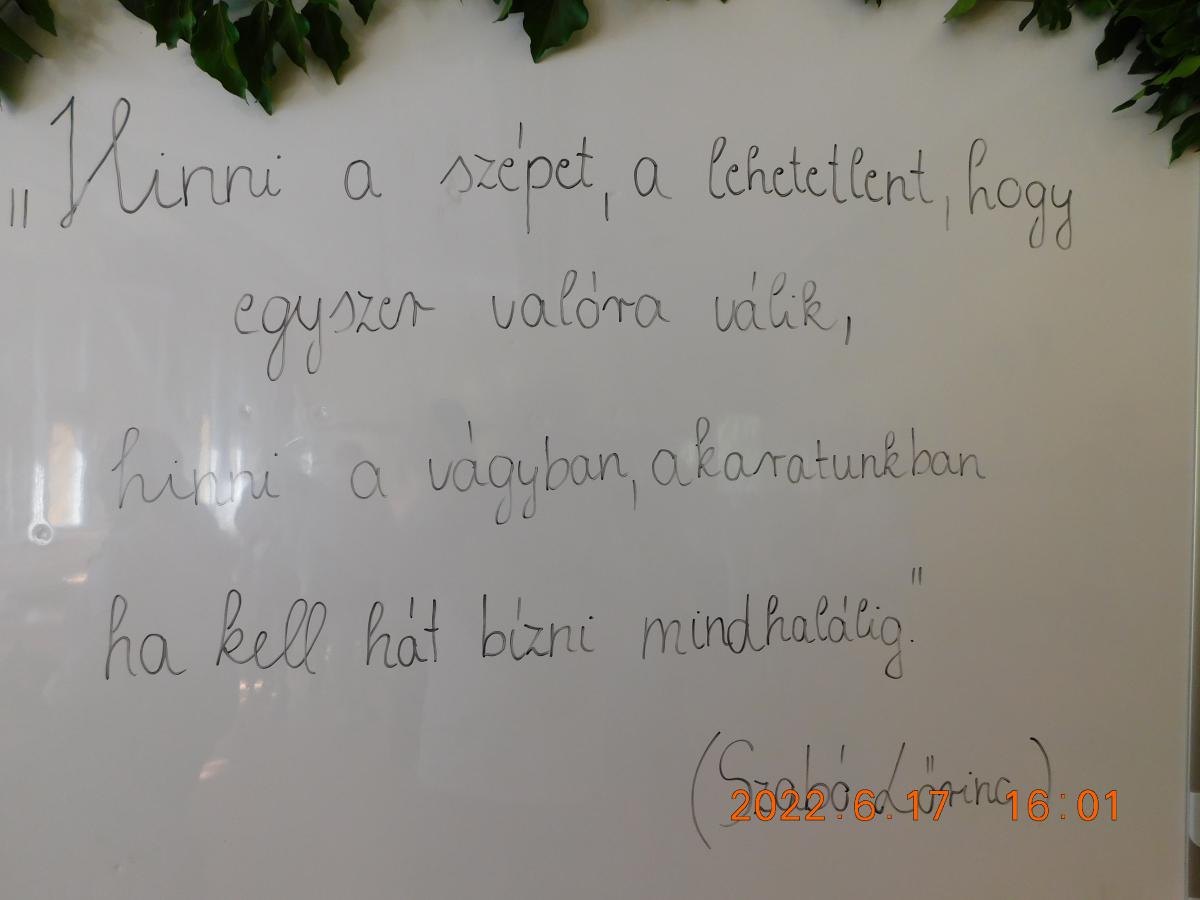 „Hinni a szépet, a lehetetlent, hogy
egyszer valóra válik,
hinni a vágyban, akaratunkban
ha kell hát bízni mindhalálig."
(Szabó Lőrinc)
2022. 6. 17 16:01